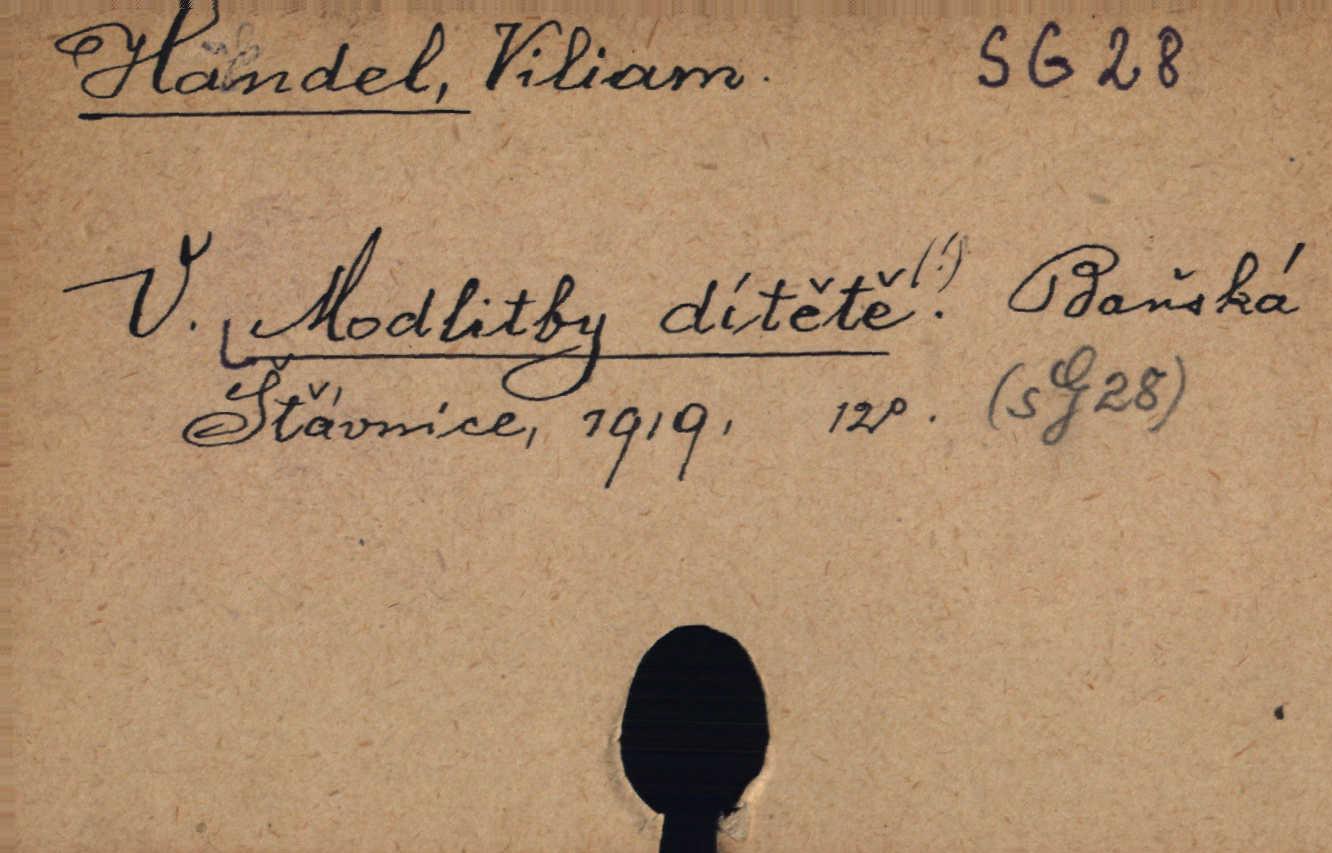 Handel, Viliam. SG 28
V. Modlitby dítětě(!). Baňská
Šťávnice, 1919, 12°. (sG 28)